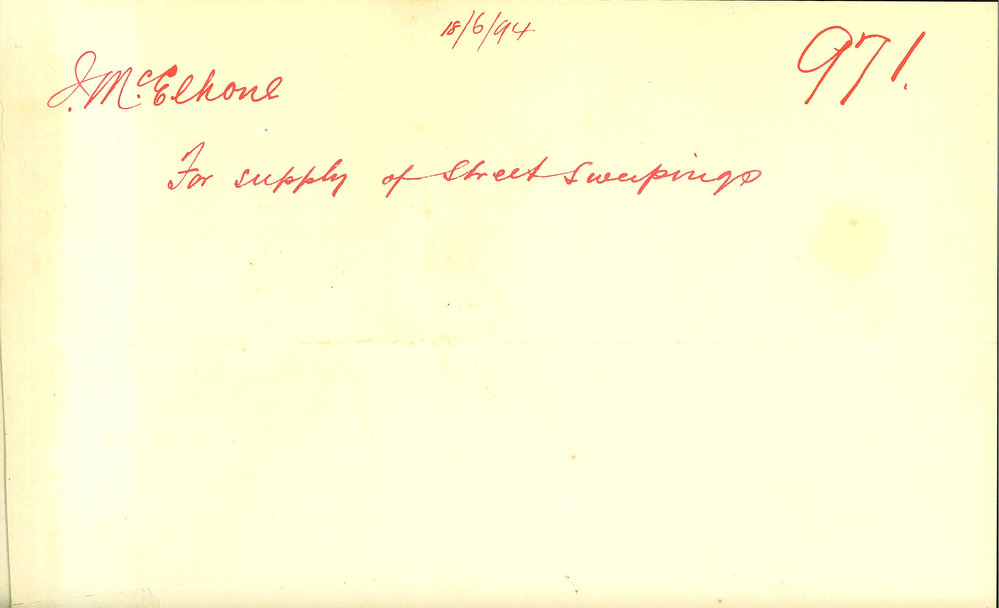 18/6/94
971.
J. McElhone
For supply of Street Sweepings